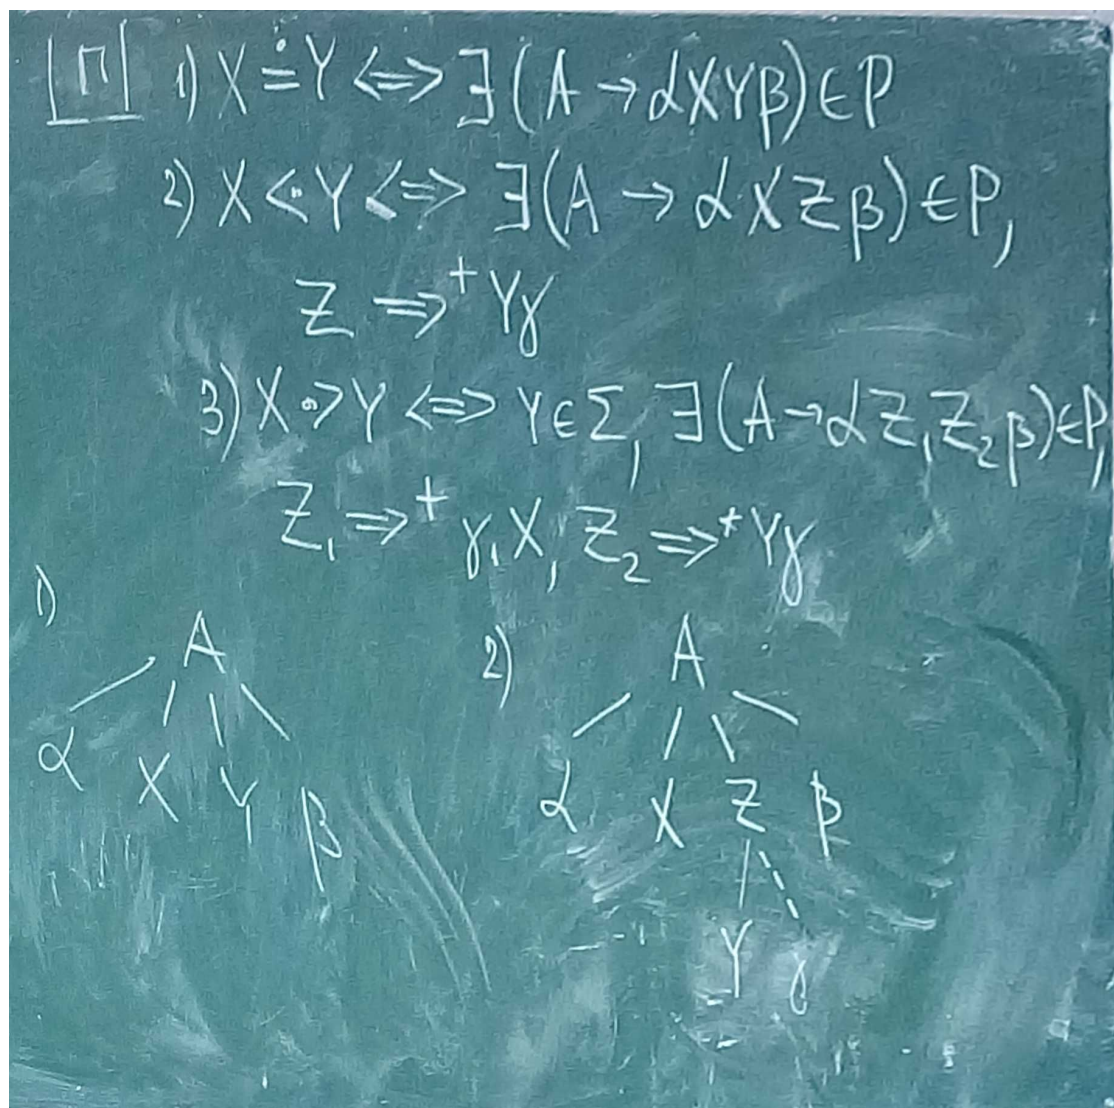 П 1) X ≐ Y <=> ∃(A → αXYβ)∈P
2) X <· Y <=> ∃(A → αXZβ)∈P,
Z =>⁺ Yγ
3) X ·> Y <=> Y∈Σ, ∃(A→αZ₁Z₂β)∈P,
Z₁ =>⁺ γ₁X, Z₂ =>* Yγ
1) 2)
A A
α X Y β α X Z β
Y γ